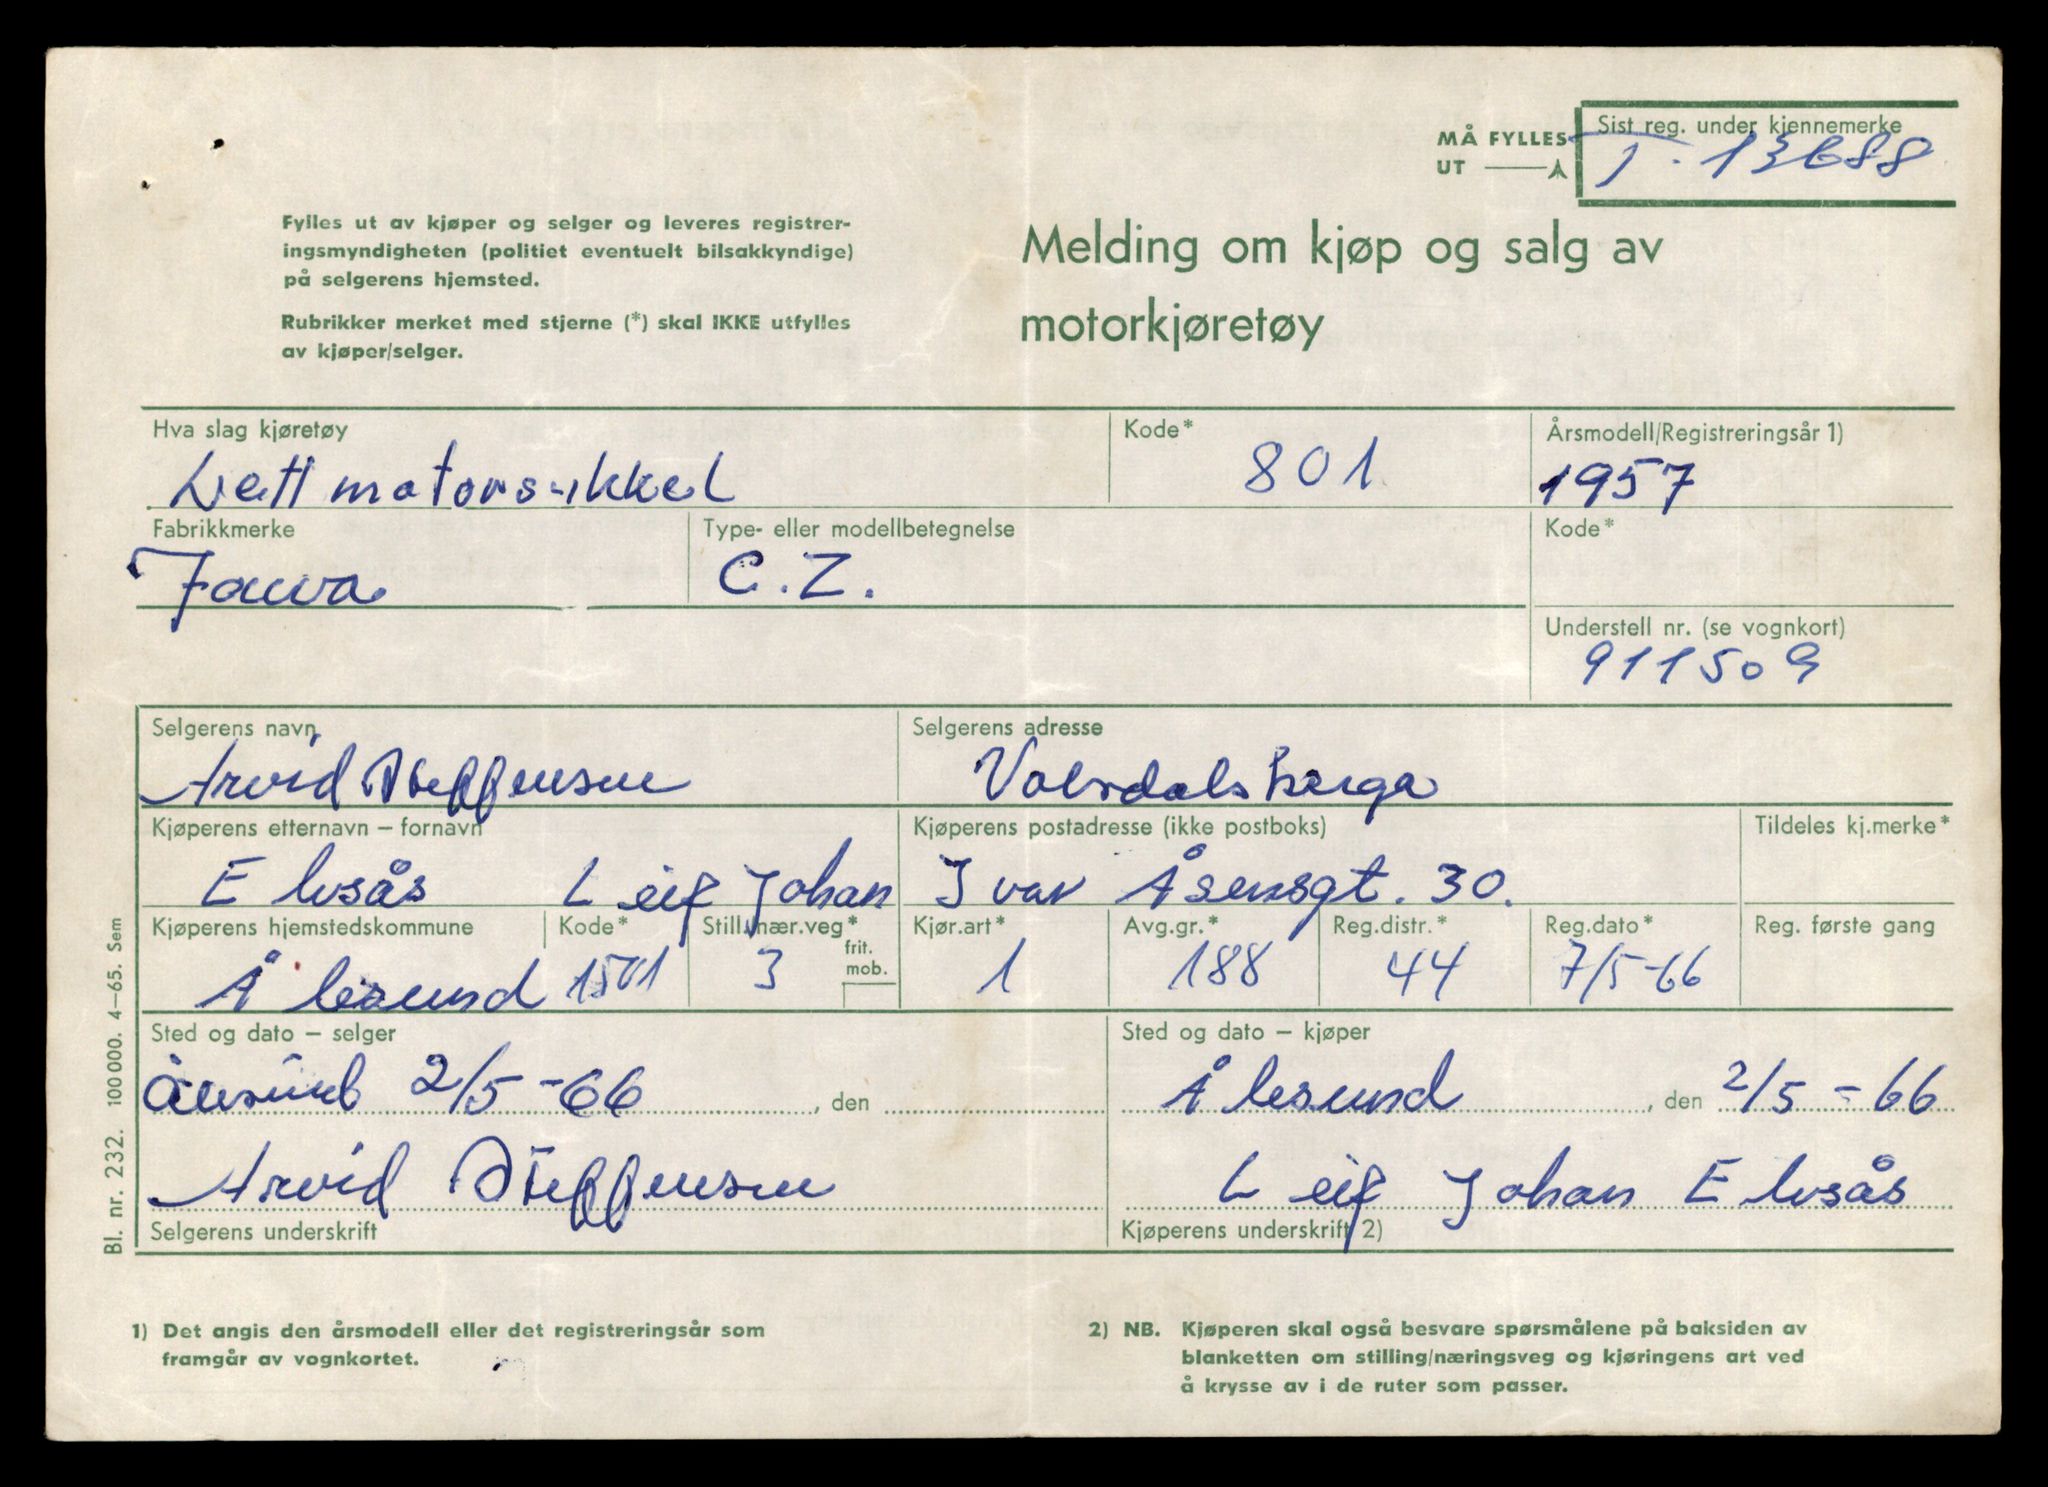 MÅ FYLLES UT
Sist reg. under kjennemerke
T-13688
Fylles ut av kjøper og selger og leveres registrer-
ingsmyndigheten (politiet eventuelt bilsakkyndige)
på selgerens hjemsted.
Rubrikker merket med stjerne (*) skal IKKE utfylles
av kjøper/selger.
Melding om kjøp og salg av
motorkjøretøy
Hva slag kjøretøy
Lett motorsikkel
Kode*
801
Årsmodell/Registreringsår 1)
1957
Fabrikkmerke
Jawa
Type- eller modellbetegnelse
C.Z.
Kode*
Understell nr. (se vognkort)
911509
Selgerens navn
Arvid Steffensen
Selgerens adresse
Volsdalsberga
Kjøperens etternavn – fornavn
Elvsås Leif Johan
Kjøperens postadresse (ikke postboks)
Ivar Åsensgt. 30.
Tildeles kj.merke*
Kjøperens hjemstedskommune
Ålesund
Kode*
1501
Still./nær.veg*
3
frit.
mob.
Kjør.art*
1
Avg.gr.*
188
Reg.distr.*
44
Reg.dato*
7/5-66
Reg. første gang
Sted og dato – selger
Ålesund 2/5-66 , den
Sted og dato – kjøper
Ålesund , den 2/5-66
Arvid Steffensen
Selgerens underskrift
Leif Johan Elvsås
Kjøperens underskrift 2)
Bl. nr. 232. 100 000. 4–65. Sem
1) Det angis den årsmodell eller det registreringsår som
framgår av vognkortet.
2) NB. Kjøperen skal også besvare spørsmålene på baksiden av
blanketten om stilling/næringsveg og kjøringens art ved
å krysse av i de ruter som passer.